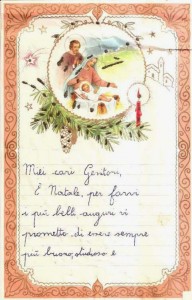 Miei cari Genitori,
È Natale, per farvi
i più belli auguri vi
prometto di essere sempre
più buono, studioso e